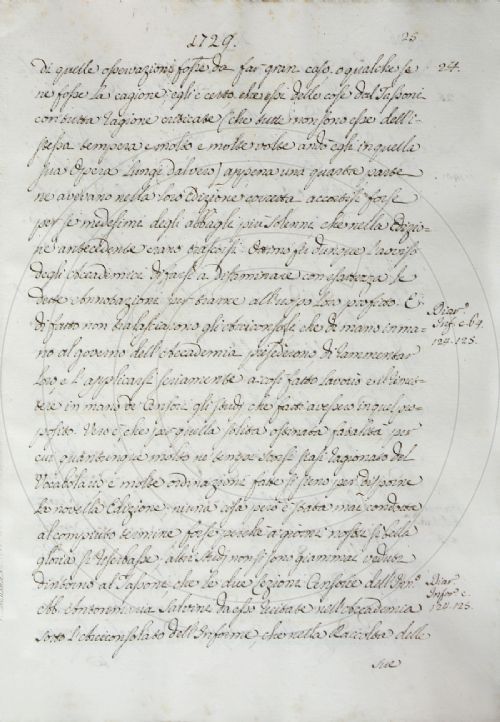 1729.
25
di quelle osservazioni fosse da far gran caso, o qualche se
24.
ne fosse la cagione; egli è certo che essi delle cose dal Tassoni
con tutta ragione criticate (che tutte non sono esse dell'i=
stessa tempera e molte e molte volte andò egli in quella
sua Opera lungi dal vero) appena una quarta parte
ne avevano nella loro Edizione corretta accortisi forse
per se medesimi degli abbagli più solenni che nella Edizio=
ne antecedente erano trascorsi. Ottimo fu dunque l'avviso
degli Accademici di farsi a disaminare con esattezza le
dette Annotazioni per trarre all'uopo loro profitto. E
di fatto non tralasciarono gli Arciconsoli che di mano in ma=
Diar.º
Inf. c. 64.
124. 125.
no al governo dell'Accademia presiederono di rammentar
loro e l'applicarsi seriamente a così fatto lavoro e il rimet=
tere in mano de' Censori gli studi che fatti avessero in quel pro=
posito. Vero è che per quella solita ostinata fatalità per
cui quantunque molto ne' tempi scorsi siasi ragionato del
Vocabolario e molte ordinazioni fatte si sieno per disporne
la novella Edizione niuna cosa però è stata mai condotta
al compiuto termine forse perchè a' giorni nostri sì bella
gloria si riserbasse altri studi non si sono giammai veduti
dintorno al Tassoni, che le due Lezioni Censorie dell'
Ab. Antonmaria Salvini da esso recitate nell'Accademia
Diar.
Infor. c.
124. 125.
sotto l'Arciconsolato dell'Informe che nella Raccolta delle
sue